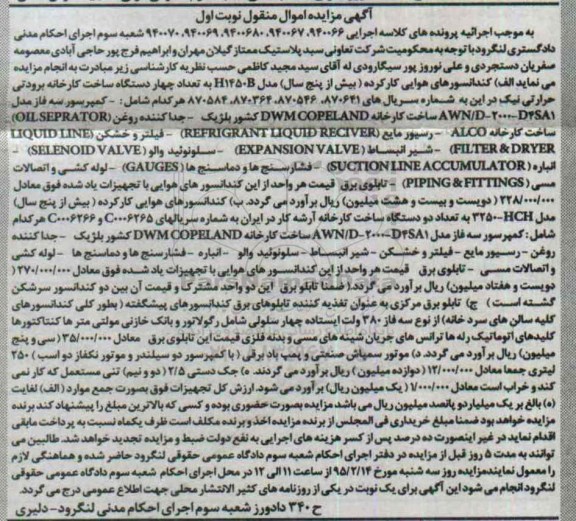 آگهی مزایده اموال منقول نوبت اول
به موجب اجرائیه پرونده های کلاسه اجرایی ۹۴۰۰۶۶، ۹۴۰۰۶۷، ۹۴۰۰۶۸۰، ۹۴۰۰۶۹، ۹۴۰۰۷۰ شعبه سوم اجرای احکام مدنی
دادگستری لنگرود با توجه به محکومیت شرکت تعاونی سبد پلاستیک ممتاز گیلان مهران و ابراهیم فرح پور حاجی آبادی معصومه
صفریان دستجردی و علی نوروز پور سیگارودی له آقای سید مجید کاظمی حسب نظریه کارشناسی زیر مبادرت به انجام مزایده
می نماید الف) کندانسورهای هوایی کارکرده (بیش از پنج سال) مدل H۱۴۵۰B به تعداد چهار دستگاه ساخت کارخانه برودتی
حرارتی نیک در این به شماره سریال های ۸۷۰۶۴۱، ۸۷۰۵۴۶، ۸۷۰۳۶۴، ۸۷۰۵۸۴ هر کدام شامل: - کمپرسور سه فاز مدل
AWN/D-۲۰۰۰-D۴SA۱ ساخت کارخانه DWM COPELAND کشور بلژیک - جدا کننده روغن (OIL SEPRATOR)
ساخت کارخانه ALCO - رسیور مایع (REFRIGRANT LIQUID RECIVER) - فیلتر و خشکن (LIQUID LINE
FILTER & DRYER) - شیر انبساط (EXPANSION VALVE) - سلونوئید والو (SELENOID VALVE) -
انباره (SUCTION LINE ACCUMULATOR) فشارسنج ها و دماسنج ها (GAUGES) - لوله کشی و اتصالات
مسی (PIPING & FITTINGS) - تابلوی برق قیمت هر واحد از این کندانسور های هوایی با تجهیزات یاد شده فوق معادل
۲۲۸/۰۰۰/۰۰۰ (دویست و بیست و هشت میلیون) ریال برآورد می گردد. ب) کندانسورهای هوایی کارکرده (بیش از پنج سال)
مدل ۳۲۵۰-HCH به تعداد دو دستگاه ساخت کارخانه آرشه کار در ایران به شماره سریالهای C۰۰۰۶۲۶۵ و C۰۰۰۶۲۶۶ هر کدام
شامل: کمپرسور سه فاز مدل AWN/D-۲۰۰۰-D۴SA۱ ساخت کارخانه DWM COPELAND کشور بلژیک - جدا کننده
روغن - رسیور مایع - فیلتر و خشکن - شیر انبساط - سلونوئید والو - انباره - فشارسنج ها و دماسنج ها - لوله کشی
و اتصالات مسی - تابلوی برق قیمت هر واحد از این کندانسور های هوایی با تجهیزات یاد شده فوق معادل ۲۷۰/۰۰۰/۰۰۰ (
دویست و هفتاد میلیون) ریال برآورد می گردد. (ضمنا تابلو برق این دو واحد مشترک و قیمت آن بین دو کندانسور سرشکن
گشته است) ج) تابلو برق مرکزی به عنوان تغذیه کننده تابلوهای برق کندانسورهای پیشگفته (بطور کلی کندانسورهای
کلیه سالن های سرد خانه) از نوع سه فاز ۳۸۰ ولت ایستاده چهار سلولی شامل رگولاتور و بانک خازنی مولتی متر ها کنتاکتورها
کلیدهای اتوماتیک رله ها ترانس های جریان شینه های مسی و بدنه فلزی قیمت این تابلوی برق معادل ۳۵/۰۰۰/۰۰۰ (سی و پنج
میلیون) ریال برآورد می گردد. د) موتور سمپاش صنعتی و پمپ باد برقی (با کمپرسور دو سیلندر و موتور تکفاز دو اسب) ۲۵۰
لیتری جمعا معادل ۱۲/۰۰۰/۰۰۰ (دوازده میلیون) ریال برآورد می گردند. ه) جک دستی ۲/۵ (دو و نیم) تنی مستعمل که کار نمی
کند و خراب است معادل ۱/۰۰۰/۰۰۰ (یک میلیون ریال) برآورد می شود. ارزش کل تجهیزات فوق بصورت جمع موارد (الف) لغایت
(ه) بالغ بر یک میلیارد و پانصد میلیون ریال می باشد. مزایده بصورت حضوری بوده و کسی که بالاترین مبلغ را پیشنهاد کند برنده
مزایده خواهد بود ضمنا مبلغ خریداری فی المجلس از برنده مزایده اخذ و برنده مکلف است ظرف یکماه نسبت به پرداخت مابقی
اقدام نماید در غیر اینصورت ده درصد پس از کسر هزینه های اجرایی به نفع دولت ضبط و مزایده تجدید خواهد شد. طالبین می
توانند به مدت ۵ روز قبل از مزایده در دفتر اجرای احکام شعبه سوم دادگاه عمومی حقوقی لنگرود حاضر شده و هماهنگی لازم
را معمول نمایند مزایده روز سه شنبه مورخ ۹۵/۲/۱۴ از ساعت ۱۱ الی ۱۲ در محل اجرای احکام شعبه سوم دادگاه عمومی حقوقی
لنگرود انجام می شود این آگهی برای یک نوبت در یکی از روزنامه های کثیر الانتشار محلی جهت اطلاع عمومی درج می گردد.
ح ۳۴۰ دادورز شعبه سوم اجرای احکام مدنی لنگرود - دلیری